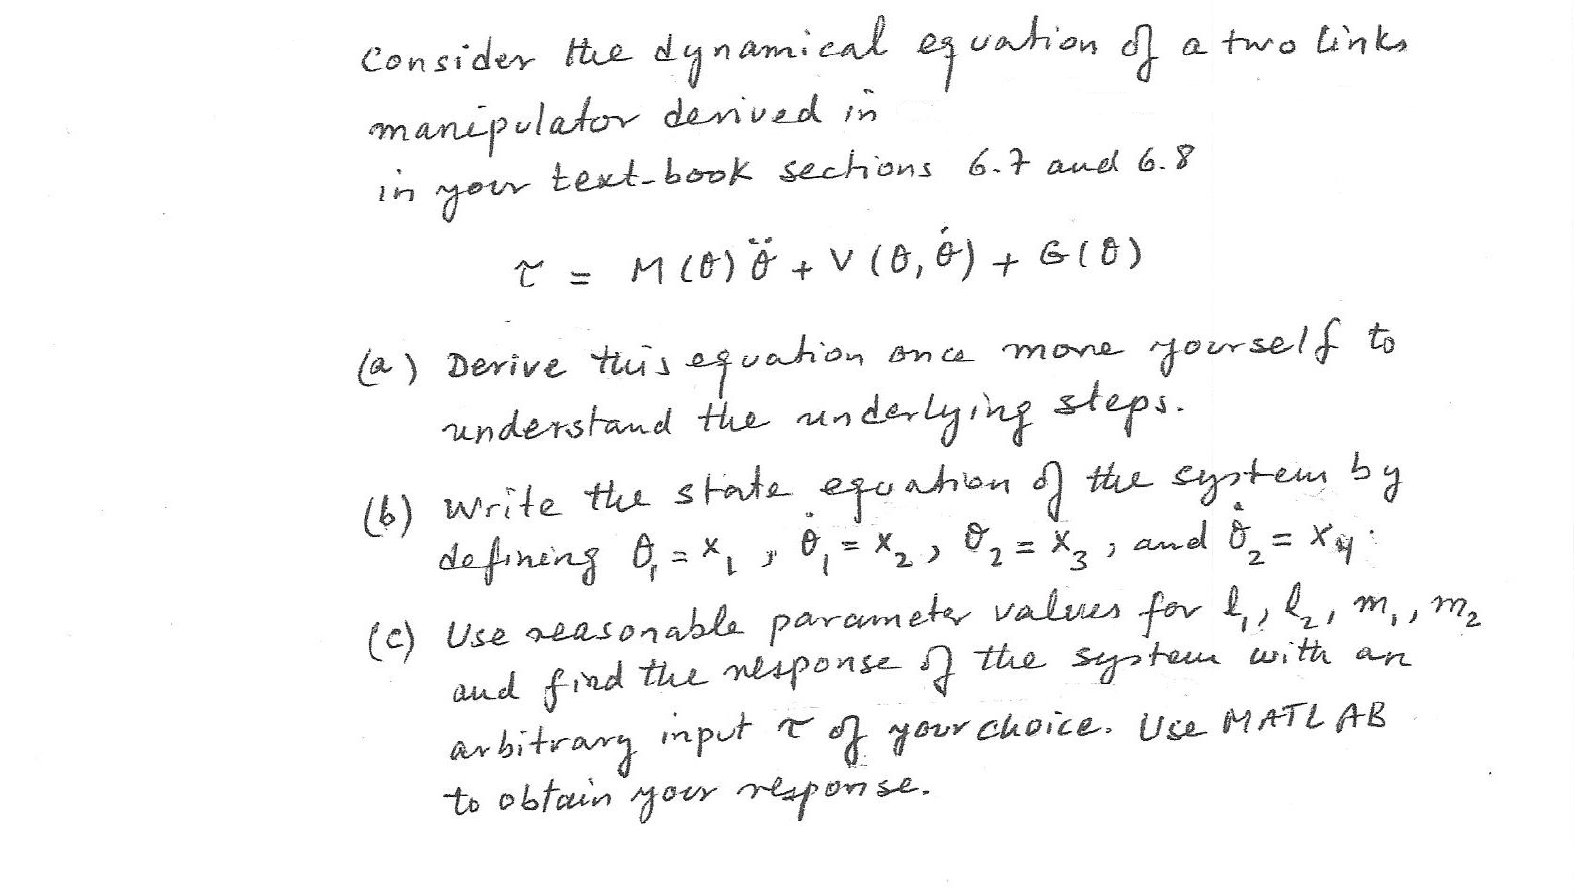 Consider the dynamical equation of a two links
manipulator derived in
in your text-book sections 6.7 and 6.8
τ = M(θ)θ̈ + V(θ, θ̇) + G(θ)
(a) Derive this equation once more yourself to
understand the underlying steps.
(b) Write the state equation of the system by
defining θ₁ = x₁, θ̇₁ = x₂, θ₂ = x₃, and θ̇₂ = x₄.
(c) Use reasonable parameter values for l₁, l₂, m₁, m₂
and find the response of the system with an
arbitrary input τ of your choice. Use MATLAB
to obtain your response.